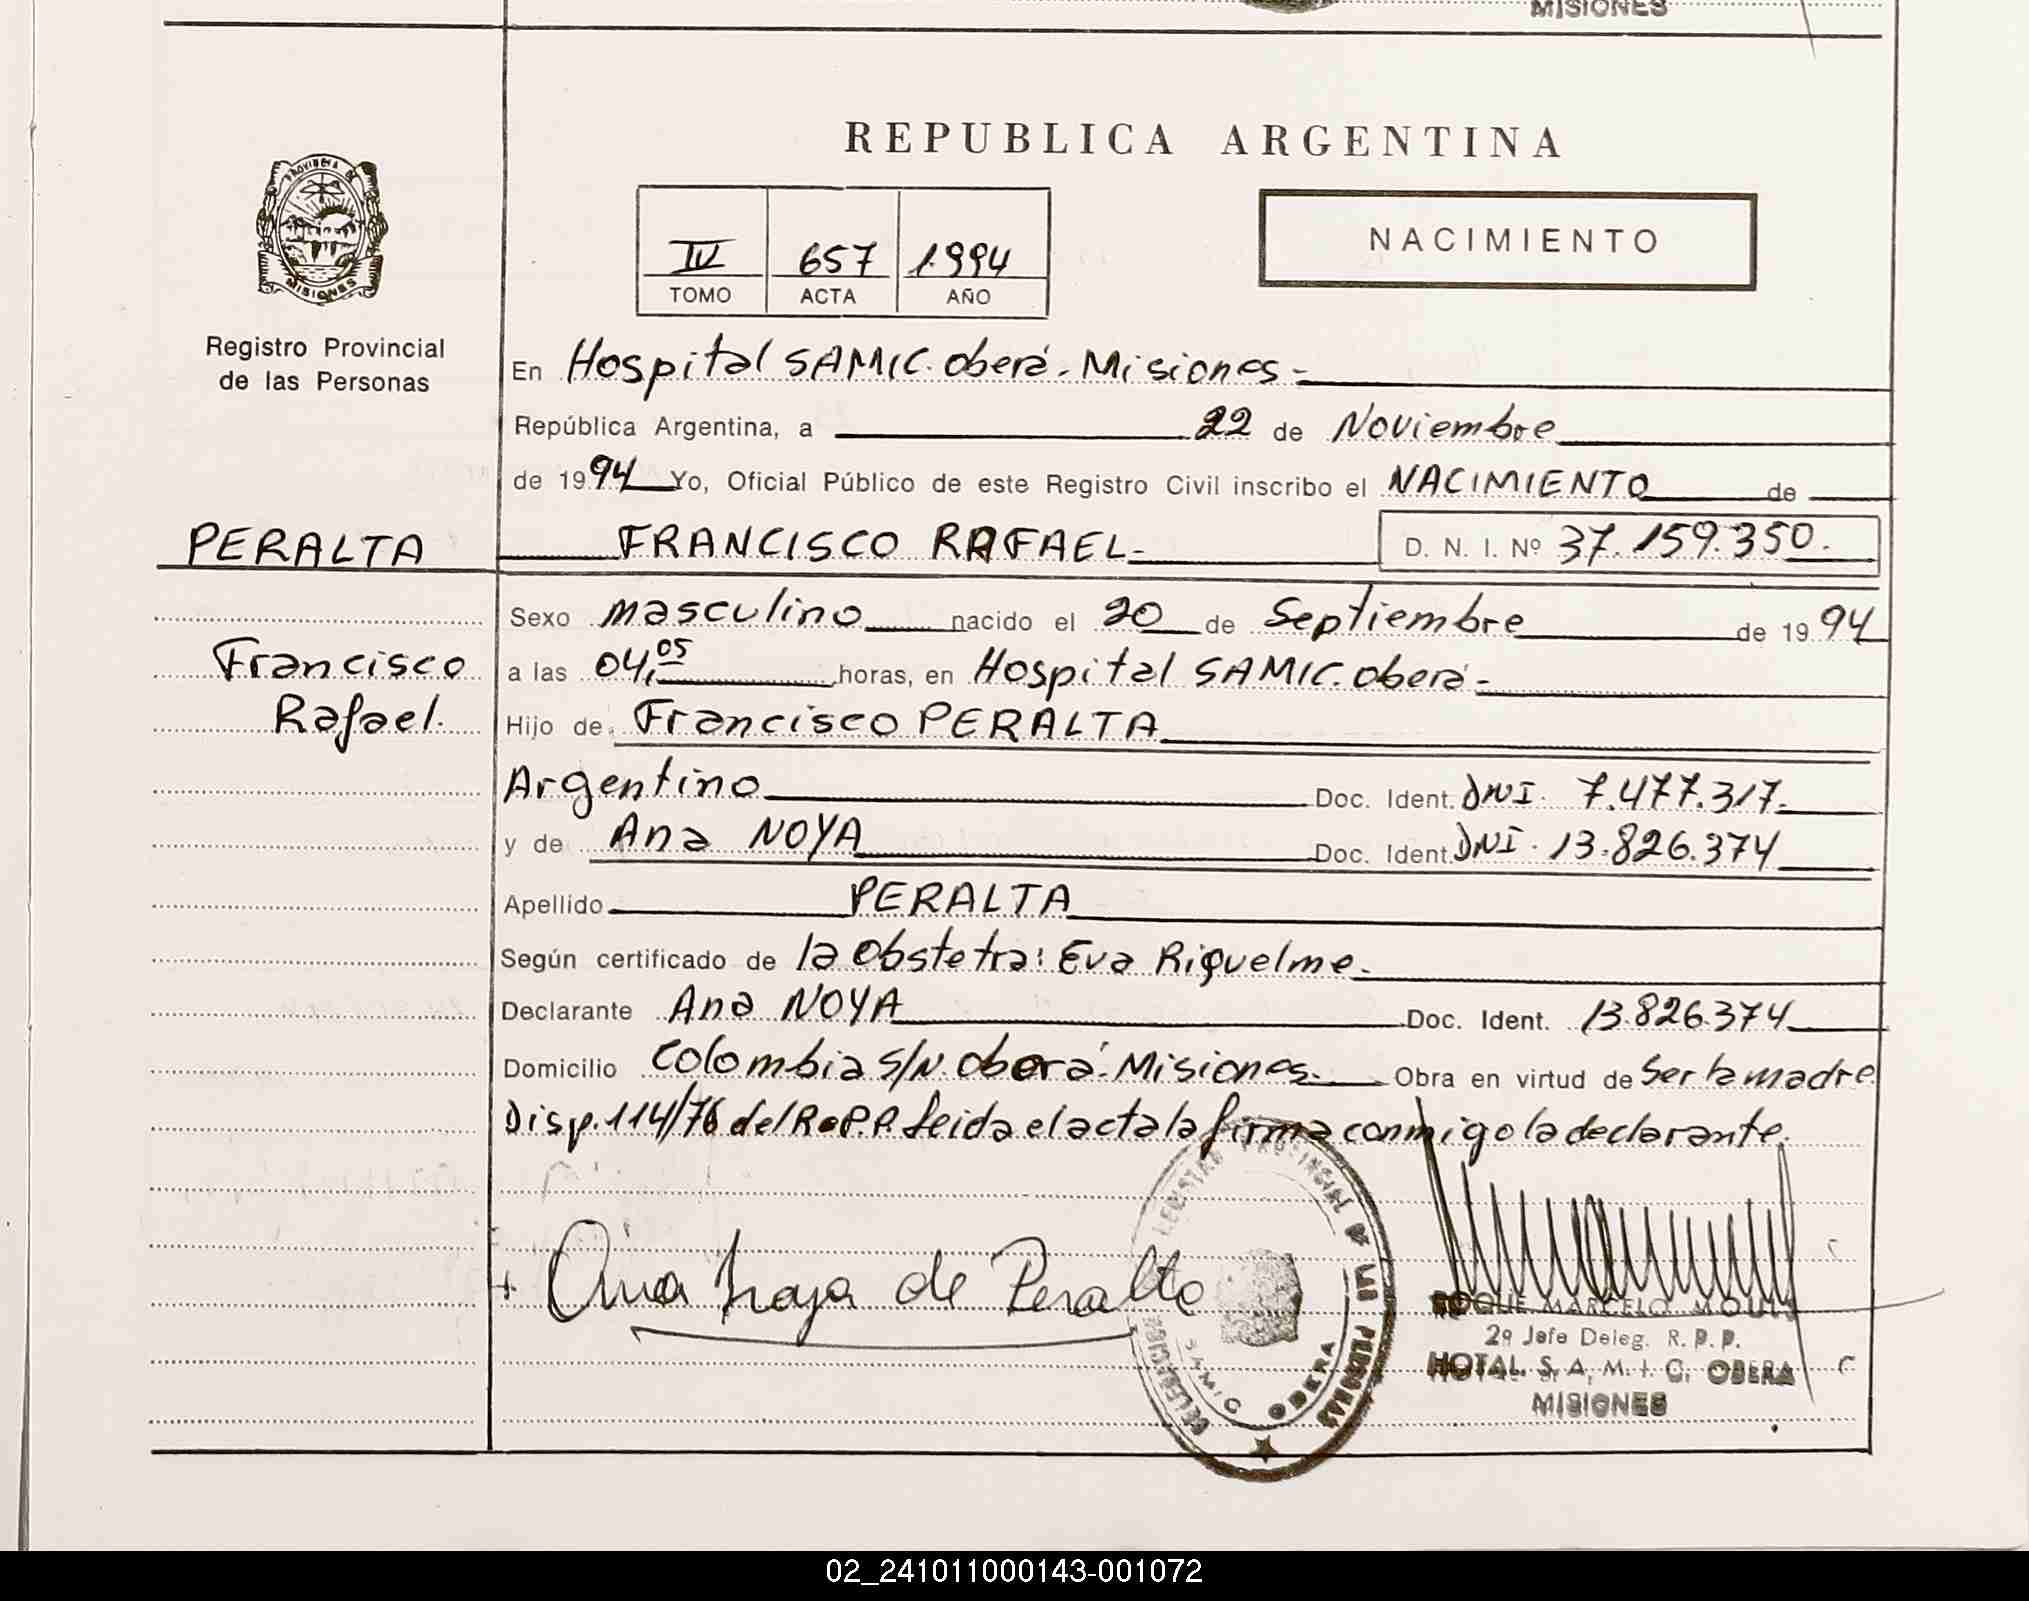 MISIONES
REPUBLICA ARGENTINA
PROVINCIA DE
MISIONES
IV 657 1994
TOMO ACTA AÑO
NACIMIENTO
Registro Provincial
de las Personas
En Hospital SAMIC. Oberá. Misiones-
República Argentina, a 22 de Noviembre
de 1994 Yo, Oficial Público de este Registro Civil inscribo el NACIMIENTO de
PERALTA FRANCISCO RAFAEL- D. N. I. Nº 37.159.350.
Sexo masculino nacido el 20 de Septiembre de 1994
Francisco a las 04,05 horas, en Hospital SAMIC. Oberá-
Rafael. Hijo de Francisco PERALTA
Argentino Doc. Ident. DNI. 7.477.317.
y de Ana NOYA Doc. Ident. DNI. 13.826.374
Apellido PERALTA
Según certificado de la Obstetra: Eva Riquelme.
Declarante Ana NOYA Doc. Ident. 13.826.374
Domicilio Colombia S/N. Oberá. Misiones. Obra en virtud de Ser la madre
Disp. 114/76 del R.P.P. leida el acta la firma conmigo la declarante.
Ana Noya de Peralta
REGISTRO PROVINCIAL DE LAS PERSONAS
SAMIC OBERA
ROQUE MARCELO
2º Jefe Deleg. R. P. P.
HOTAL. S. A. M. I. C. OBERA
MISIONES
02_241011000143-001072